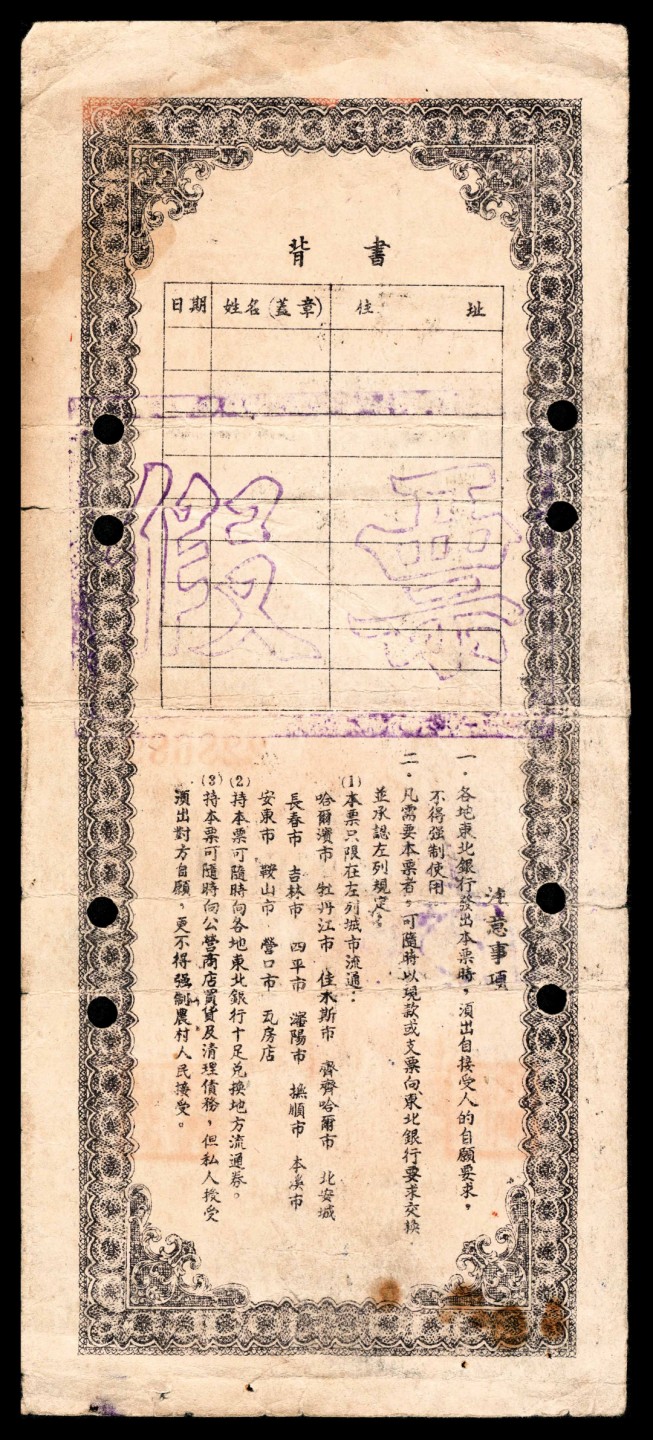 背書
日期 姓名(蓋章) 住址
假票
注意事項
一。各地東北銀行發出本票時，須出自接受人的自願要求，
不得强制使用
二。凡需要本票者，可隨時以現款或支票向東北銀行要求交換
並承認左列規定：
(1)本票只限在左列城市流通：
哈爾濱市 牡丹江市 佳木斯市 齊齊哈爾市 北安城
長春市 吉林市 四平市 瀋陽市 撫順市 本溪市
安東市 鞍山市 營口市 瓦房店
(2)持本票可隨時向各地東北銀行十足兑換地方流通券。
(3)持本票可隨時向公營商店買貨及清理債務，但私人授受
須出對方自願，更不得强制農村人民接受。